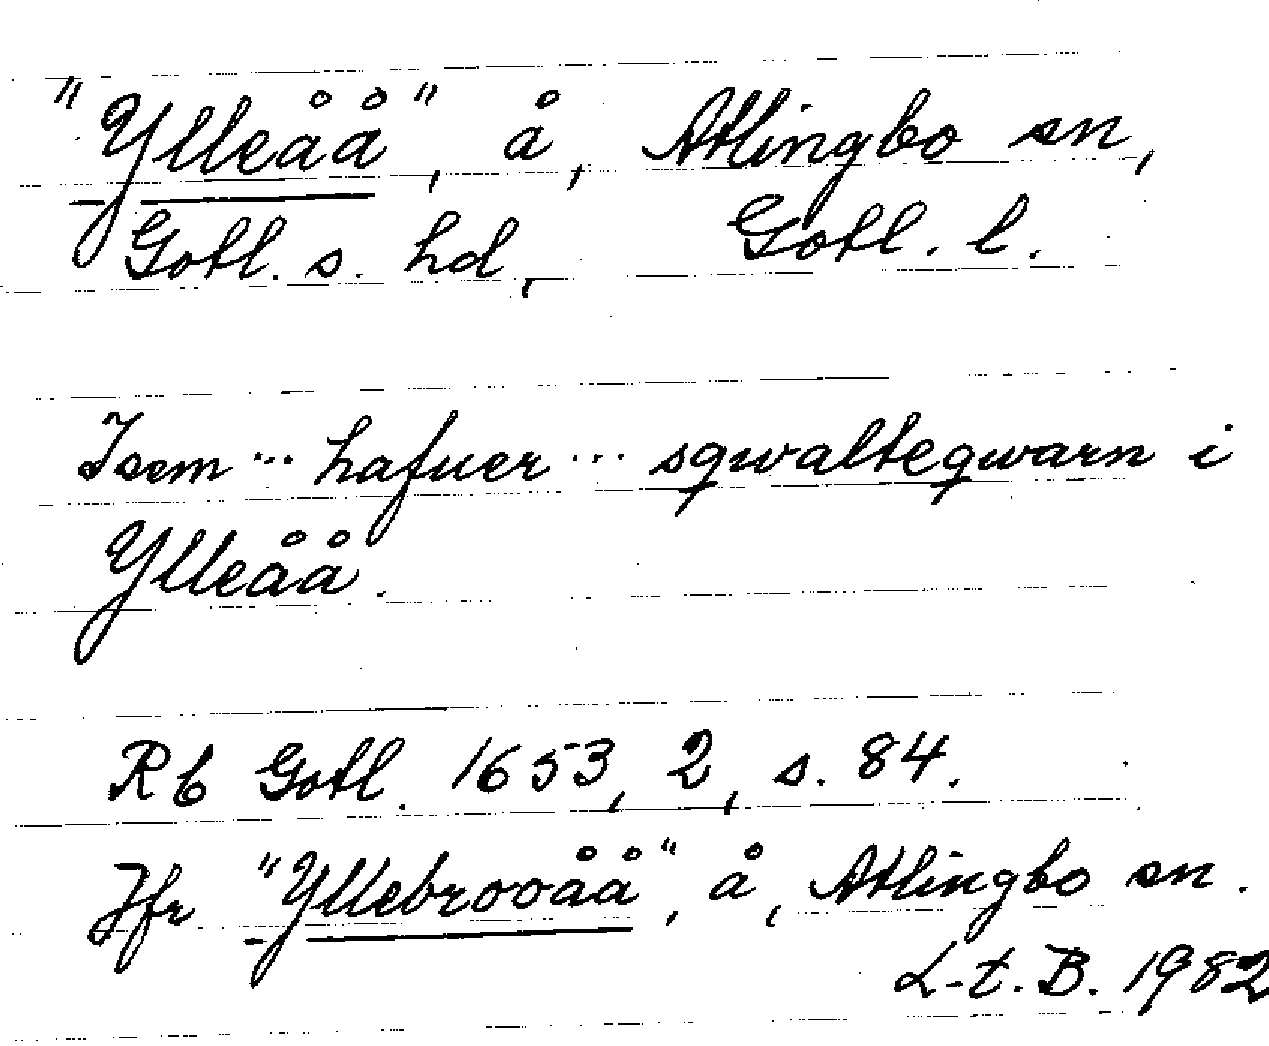 "Ylleåå", å, Atlingbo sn,
Gotl. s. hd, Gotl. l.
Isem ... hafuer ... sqwalteqwarn i
Ylleåå.
Rb Gotl. 1653, 2, s. 84.
Jfr "Yllebrooåå", å, Atlingbo sn.
L-t. B. 1982